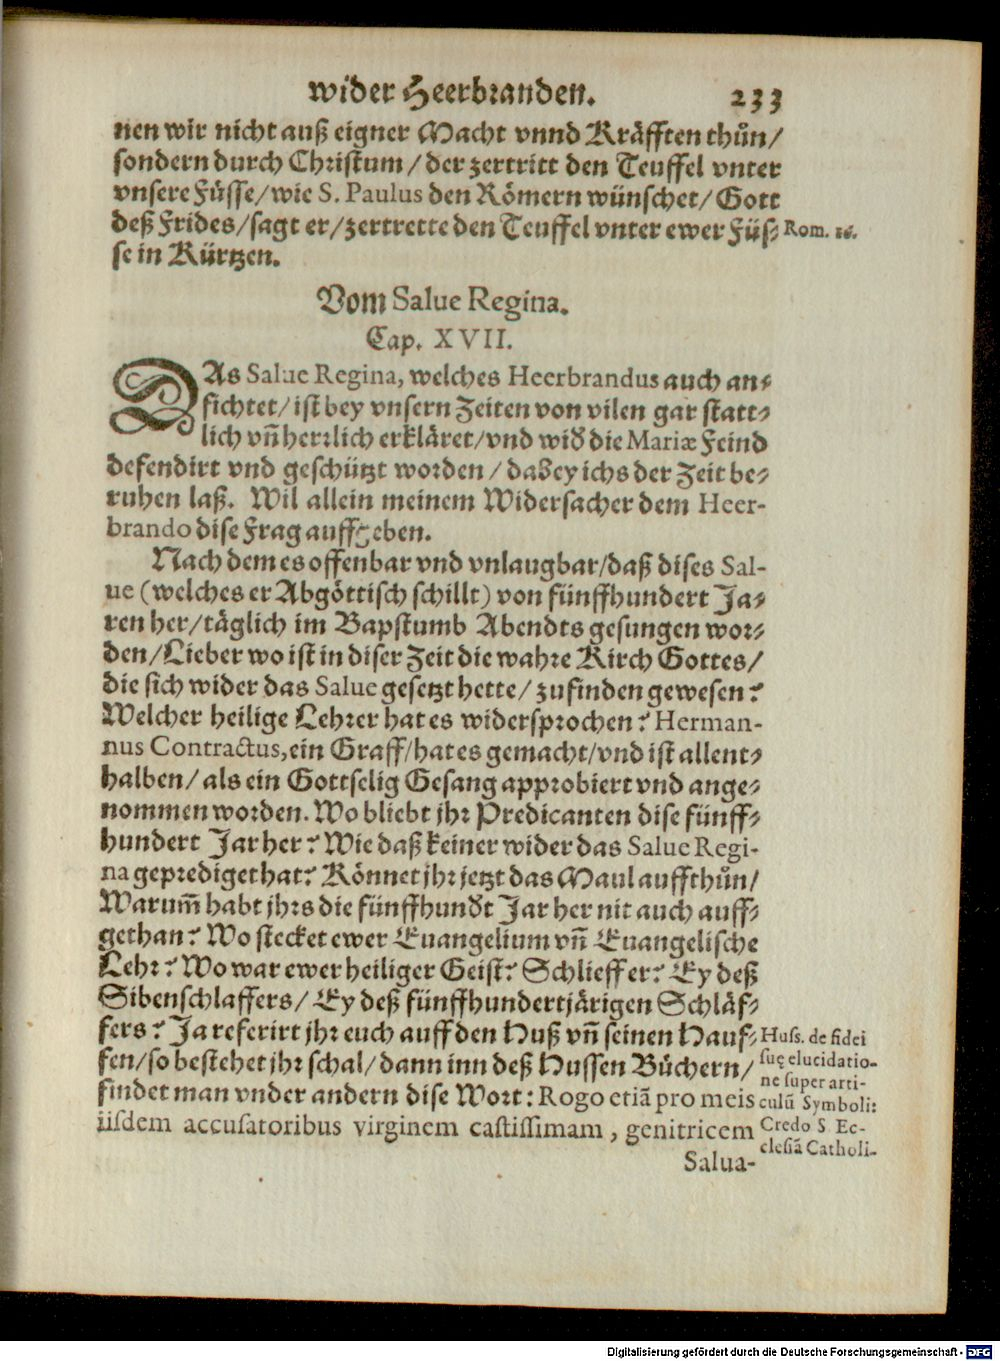 wider Heerbranden. 233
nen wir nicht auß eigner Macht vnnd Kräfften thůn/
sondern durch Christum/ der zertritt den Teuffel vnter
vnsere Füsse/ wie S. Paulus den Römern wünschet/ Gott
deß Frides/ sagt er/ zertrette den Teuffel vnter ewer Füs- Rom. 16.
se in Kürtzen.
Vom Salue Regina.
Cap. XVII.
DAs Salue Regina, welches Heerbrandus auch an-
fichtet/ ist bey vnsern Zeiten von vilen gar statt-
lich vñ herrlich erkläret/ vnd wid die Mariæ Feind
defendirt vnd geschützt worden/ dabey ichs der Zeit be-
ruhen laß. Wil allein meinem Widersacher dem Heer-
brando dise Frag auffgeben.
Nach dem es offenbar vnd vnlaugbar/ daß dises Sal-
ue (welches er Abgöttisch schillt) von fünffhundert Ja-
ren her/ täglich im Bapstumb Abendts gesungen wor-
den/ Lieber wo ist in diser Zeit die wahre Kirch Gottes/
die sich wider das Salue gesetzt hette/ zufinden gewesen?
Welcher heilige Lehrer hat es widersprochen? Herman-
nus Contractus, ein Graff/ hat es gemacht/ vnd ist allent-
halben/ als ein Gottselig Gesang approbiert vnd ange-
nommen worden. Wo bliebt jhr Predicanten dise fünff-
hundert Jar her? Wie daß keiner wider das Salue Regi-
na geprediget hat? Könnet jhr jetzt das Maul auffthůn/
Warum̃ habt jhrs die fünffhundt Jar her nit auch auff-
gethan? Wo stecket ewer Euangelium vñ Euangelische
Lehr? Wo war ewer heiliger Geist? Schlieff er? Ey deß
Sibenschlaffers/ Ey deß fünffhundertjärigen Schläf-
fers? Ja referirt jhr euch auff den Huß vñ seinen Hauf-
fen/ so bestehet jhr schal/ dann inn deß Hussen Büchern/
findet man vnder andern dise Wort: Rogo etiã pro meis
iisdem accusatoribus virginem castissimam, genitricem
Salua-
Huss. de fidei
suę elucidatio-
ne super arti-
culũ Symboli:
Credo S. Ec-
clesiã Catholi-
Digitalisierung gefördert durch die Deutsche Forschungsgemeinschaft - DFG